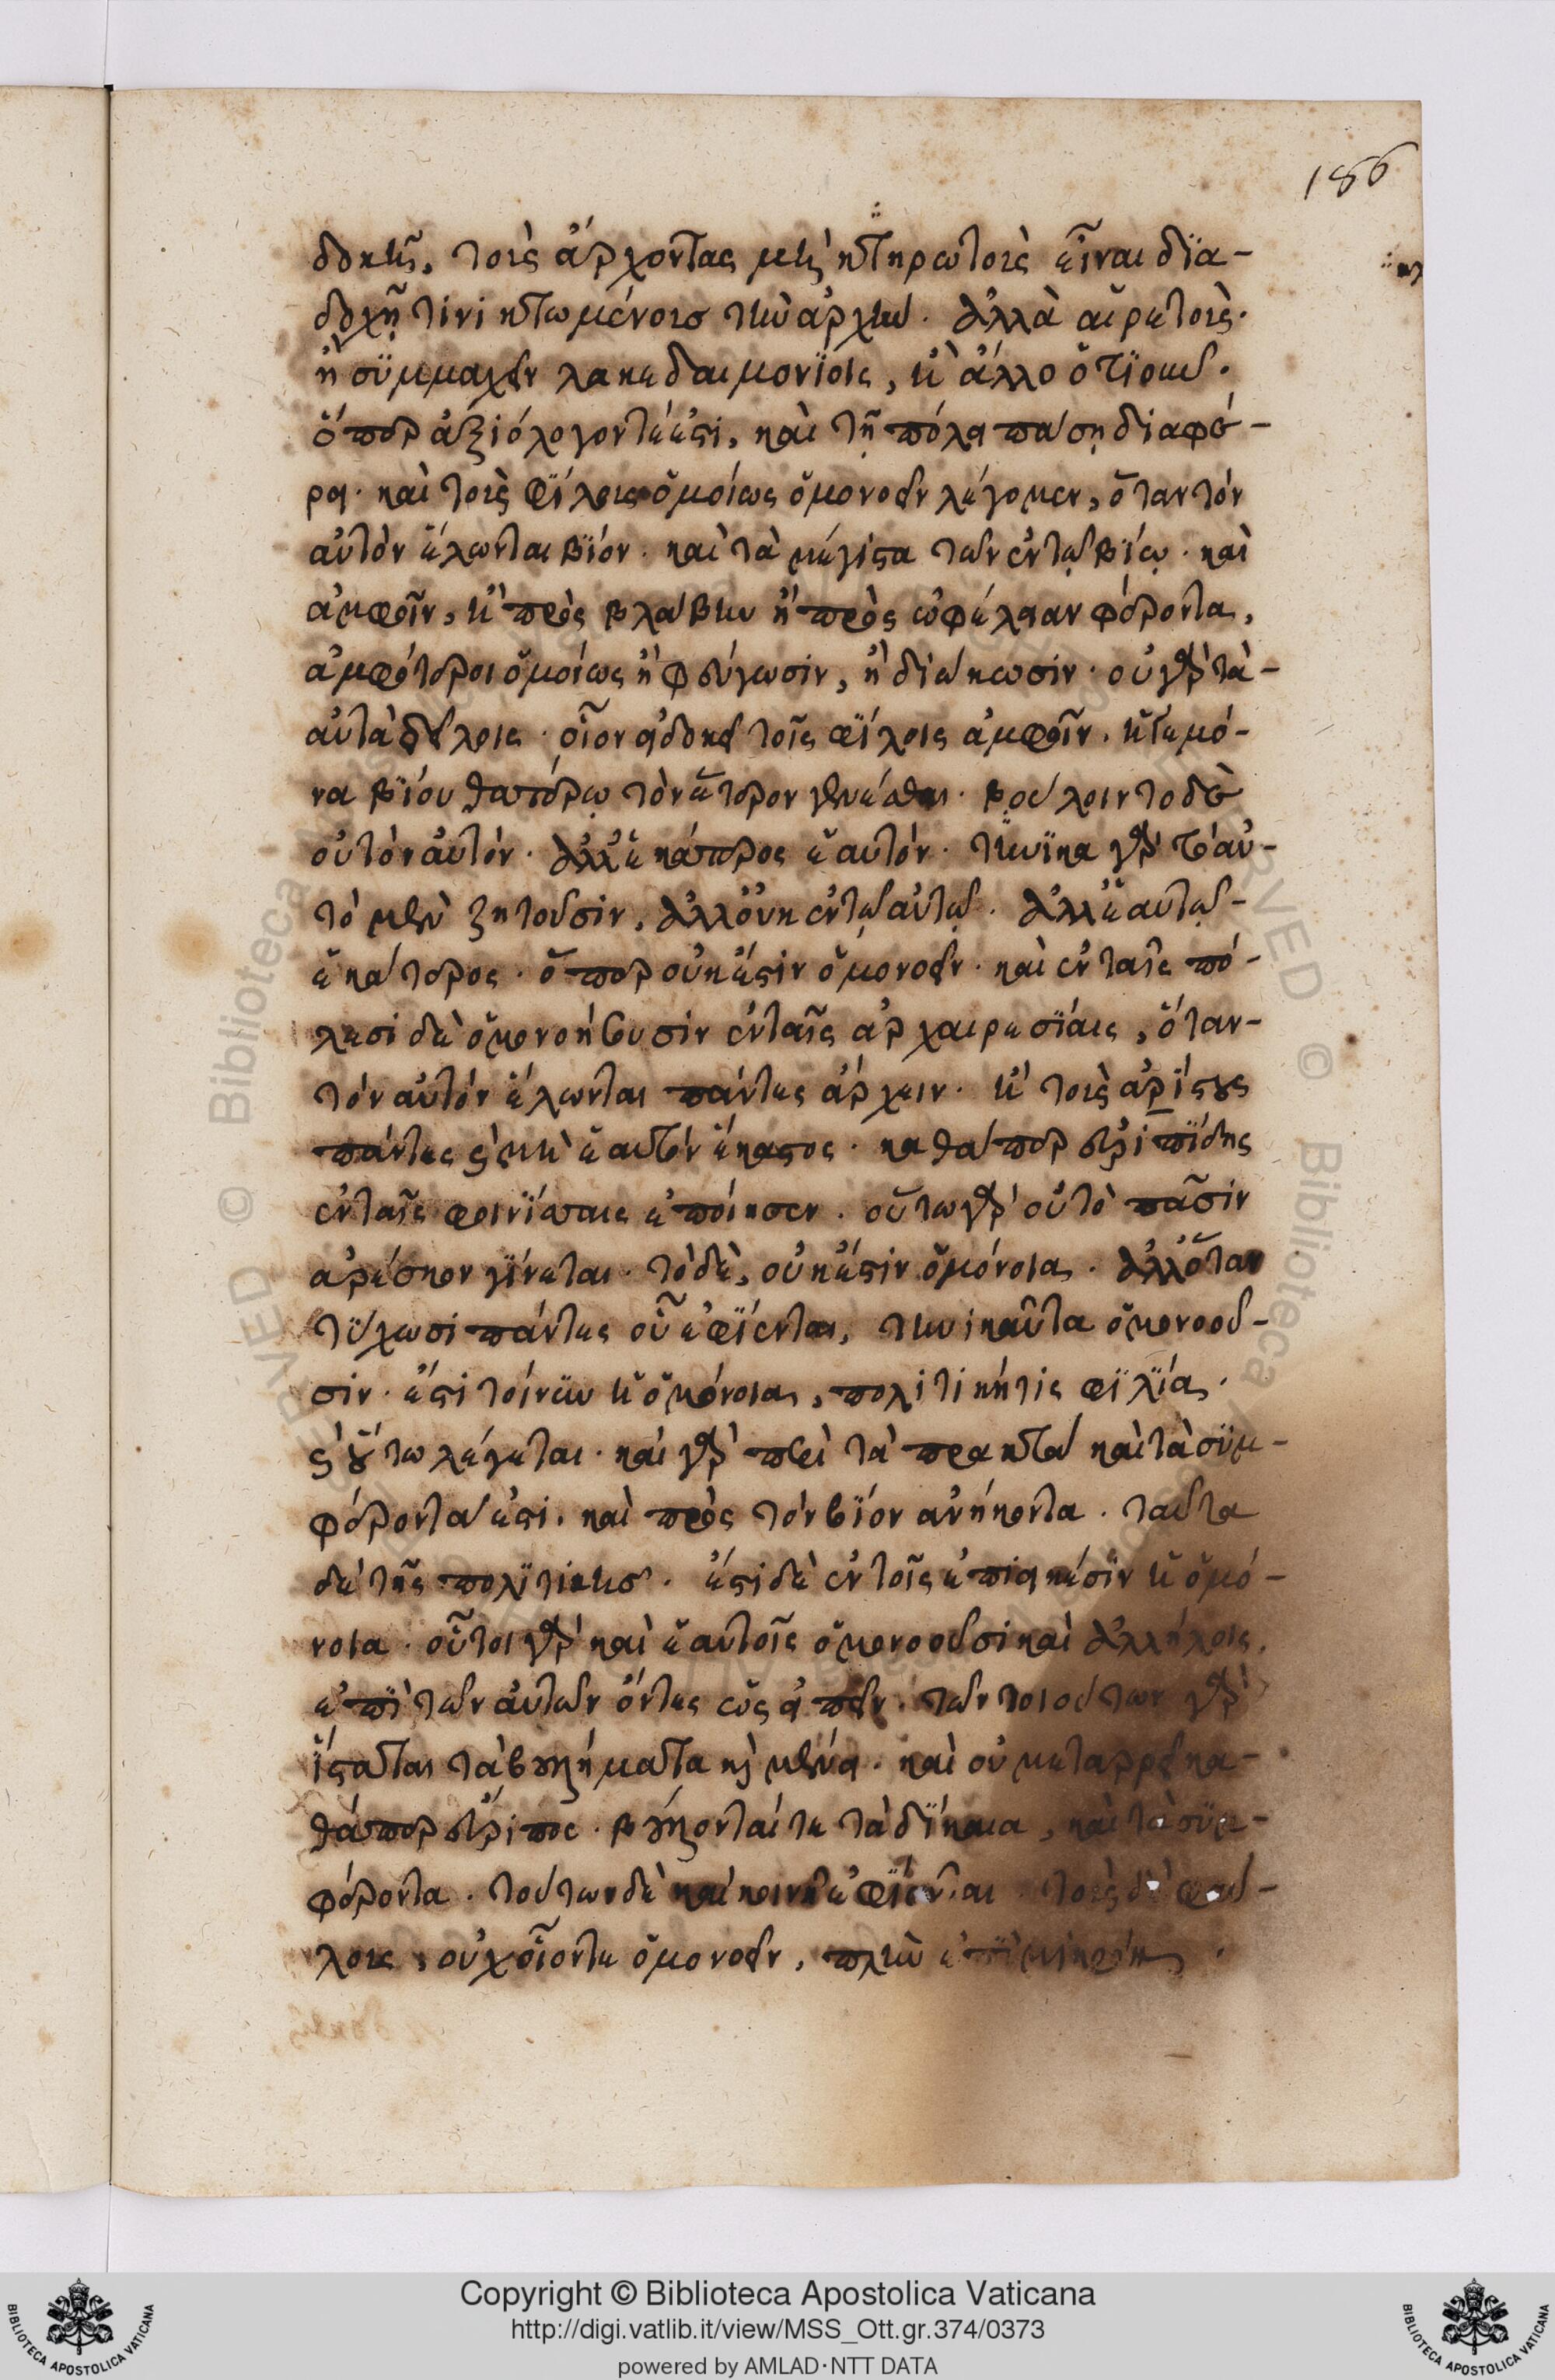 186
δοκῇ, τοὺς ἄρχοντας μὴ κτηρωτοὺς εἶναι δϊα-
δοχῇ τινι κτωμένους τὴν ἀρχήν. ἀλλὰ αἱρετούς.
ἢ συμμαχεῖν λακεδαιμονίοις, ἢ ἄλλο ὁτϊοῦν.
ὅπερ ἀξιόλογόν τέ ἐστι, καὶ τῇ πόλει πάσῃ διαφέ-
ρει. καὶ τοὺς φίλους ὁμοίως ὁμονοεῖν λέγομεν, ὅταν τὸν
αὐτὸν ἕλωνται βίον. καὶ τὰ μέγιστα τῶν ἐν τῷ βίῳ. καὶ
ἀμφοῖν, ἢ πρὸς βλάβην ἢ πρὸς ὠφέλειαν φέροντα,
ἀμφότεροι ὁμοίως ἢ φεύγωσιν, ἢ διώκωσιν. οὐ γὰρ τὰ-
αὐτὰ βούλοις. οἷον εἰ δοκεῖ τοῖς φίλοις ἀμφοῖν, ἡγεμό-
να βίου θατέρῳ τὸν ἕτερον γενέσθαι. βούλοιντο δὲ
οὐ τὸν αὐτόν. ἀλλ' ἑκάτερος ἑαυτόν. τηνϊκα γὰρ τὸ αὐ-
τὸ μὲν ζητοῦσιν, ἀλλ' οὐκ ἐν τῷ αὐτῷ. ἀλλ' ἑαυτῷ-
ἑκάτερος. ὅπερ οὐκ ἔστιν ὁμονοεῖν. καὶ ἐν ταῖς πό-
λεσι δὲ ὁμονοήσουσιν ἐν ταῖς ἀρχαιρεσίαις, ὅταν-
τὸν αὐτὸν ἕλωνται πάντες ἄρχειν. ἢ τοὺς ἀρίστους
πάντες καὶ μὴ ἑαυτὸν ἕκαστος. καθάπερ εὐριπίδης
ἐν ταῖς φοινίσσαις ἐποίησεν. οὕτω γὰρ οὐ τὸ πᾶσιν
ἀρέσκον γίνεται. τὸ δὲ, οὐκ ἔστιν ὁμόνοια. ἀλλ' ὅταν
τύχωσι πάντες οὗ ἐφίενται, τηνικαῦτα ὁμονοοῦ-
σιν. ἔστι τοίνυν ἡ ὁμόνοια, πολιτικήτις φϊλϊά.
καὶ οὕτω λέγεται. καὶ γὰρ περὶ τὰ πρακτὰ καὶ τὰ συμ-
φέροντά ἐστι. καὶ πρὸς τὸν βίον ἀνήκοντα. ταῦτα
δὲ τῆς πολϊτικῆς. ἔστι δὲ ἐν τοῖς ἐπιεικέσιν ἡ ὁμό-
νοια. οὗτοι γὰρ καὶ ἑαυτοῖς ὁμονοοῦσι καὶ ἀλλήλοις,
ἐπὶ τῶν αὐτῶν ὄντες ὡς εἰπεῖν. τῶν τοιούτων γὰρ
ἵσταται τὰ βουλήματα καὶ μένει. καὶ οὐ μεταρρεῖ κα-
θάπερ εὔριπος. βούλονταί τε τὰ δίκαια, καὶ τὰ συμ-
φέροντα. τούτων δὲ καὶ κοινῇ ἐφίενται. τοὺς δὲ φαύ-
λους, οὐχ οἷόν τε ὁμονοεῖν, πλὴν ἐπὶ μικρόν.
Copyright © Biblioteca Apostolica Vaticana
http://digi.vatlib.it/view/MSS_Ott.gr.374/0373
powered by AMLAD·NTT DATA